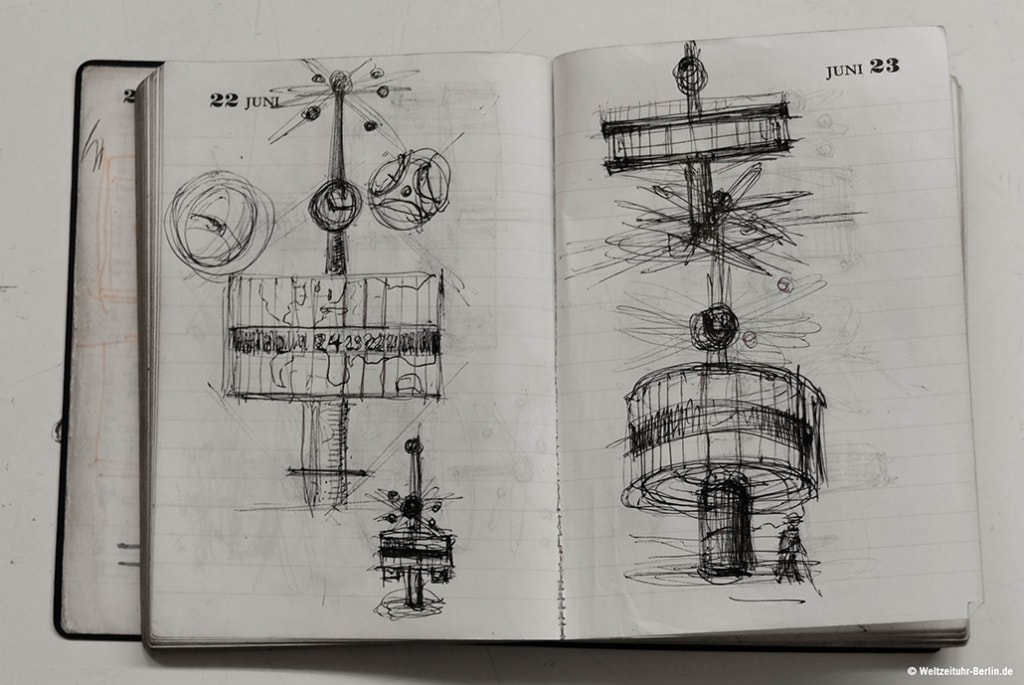 22 JUNI
JUNI 23
2
24 23 22 21
© Weltzeituhr-Berlin.de